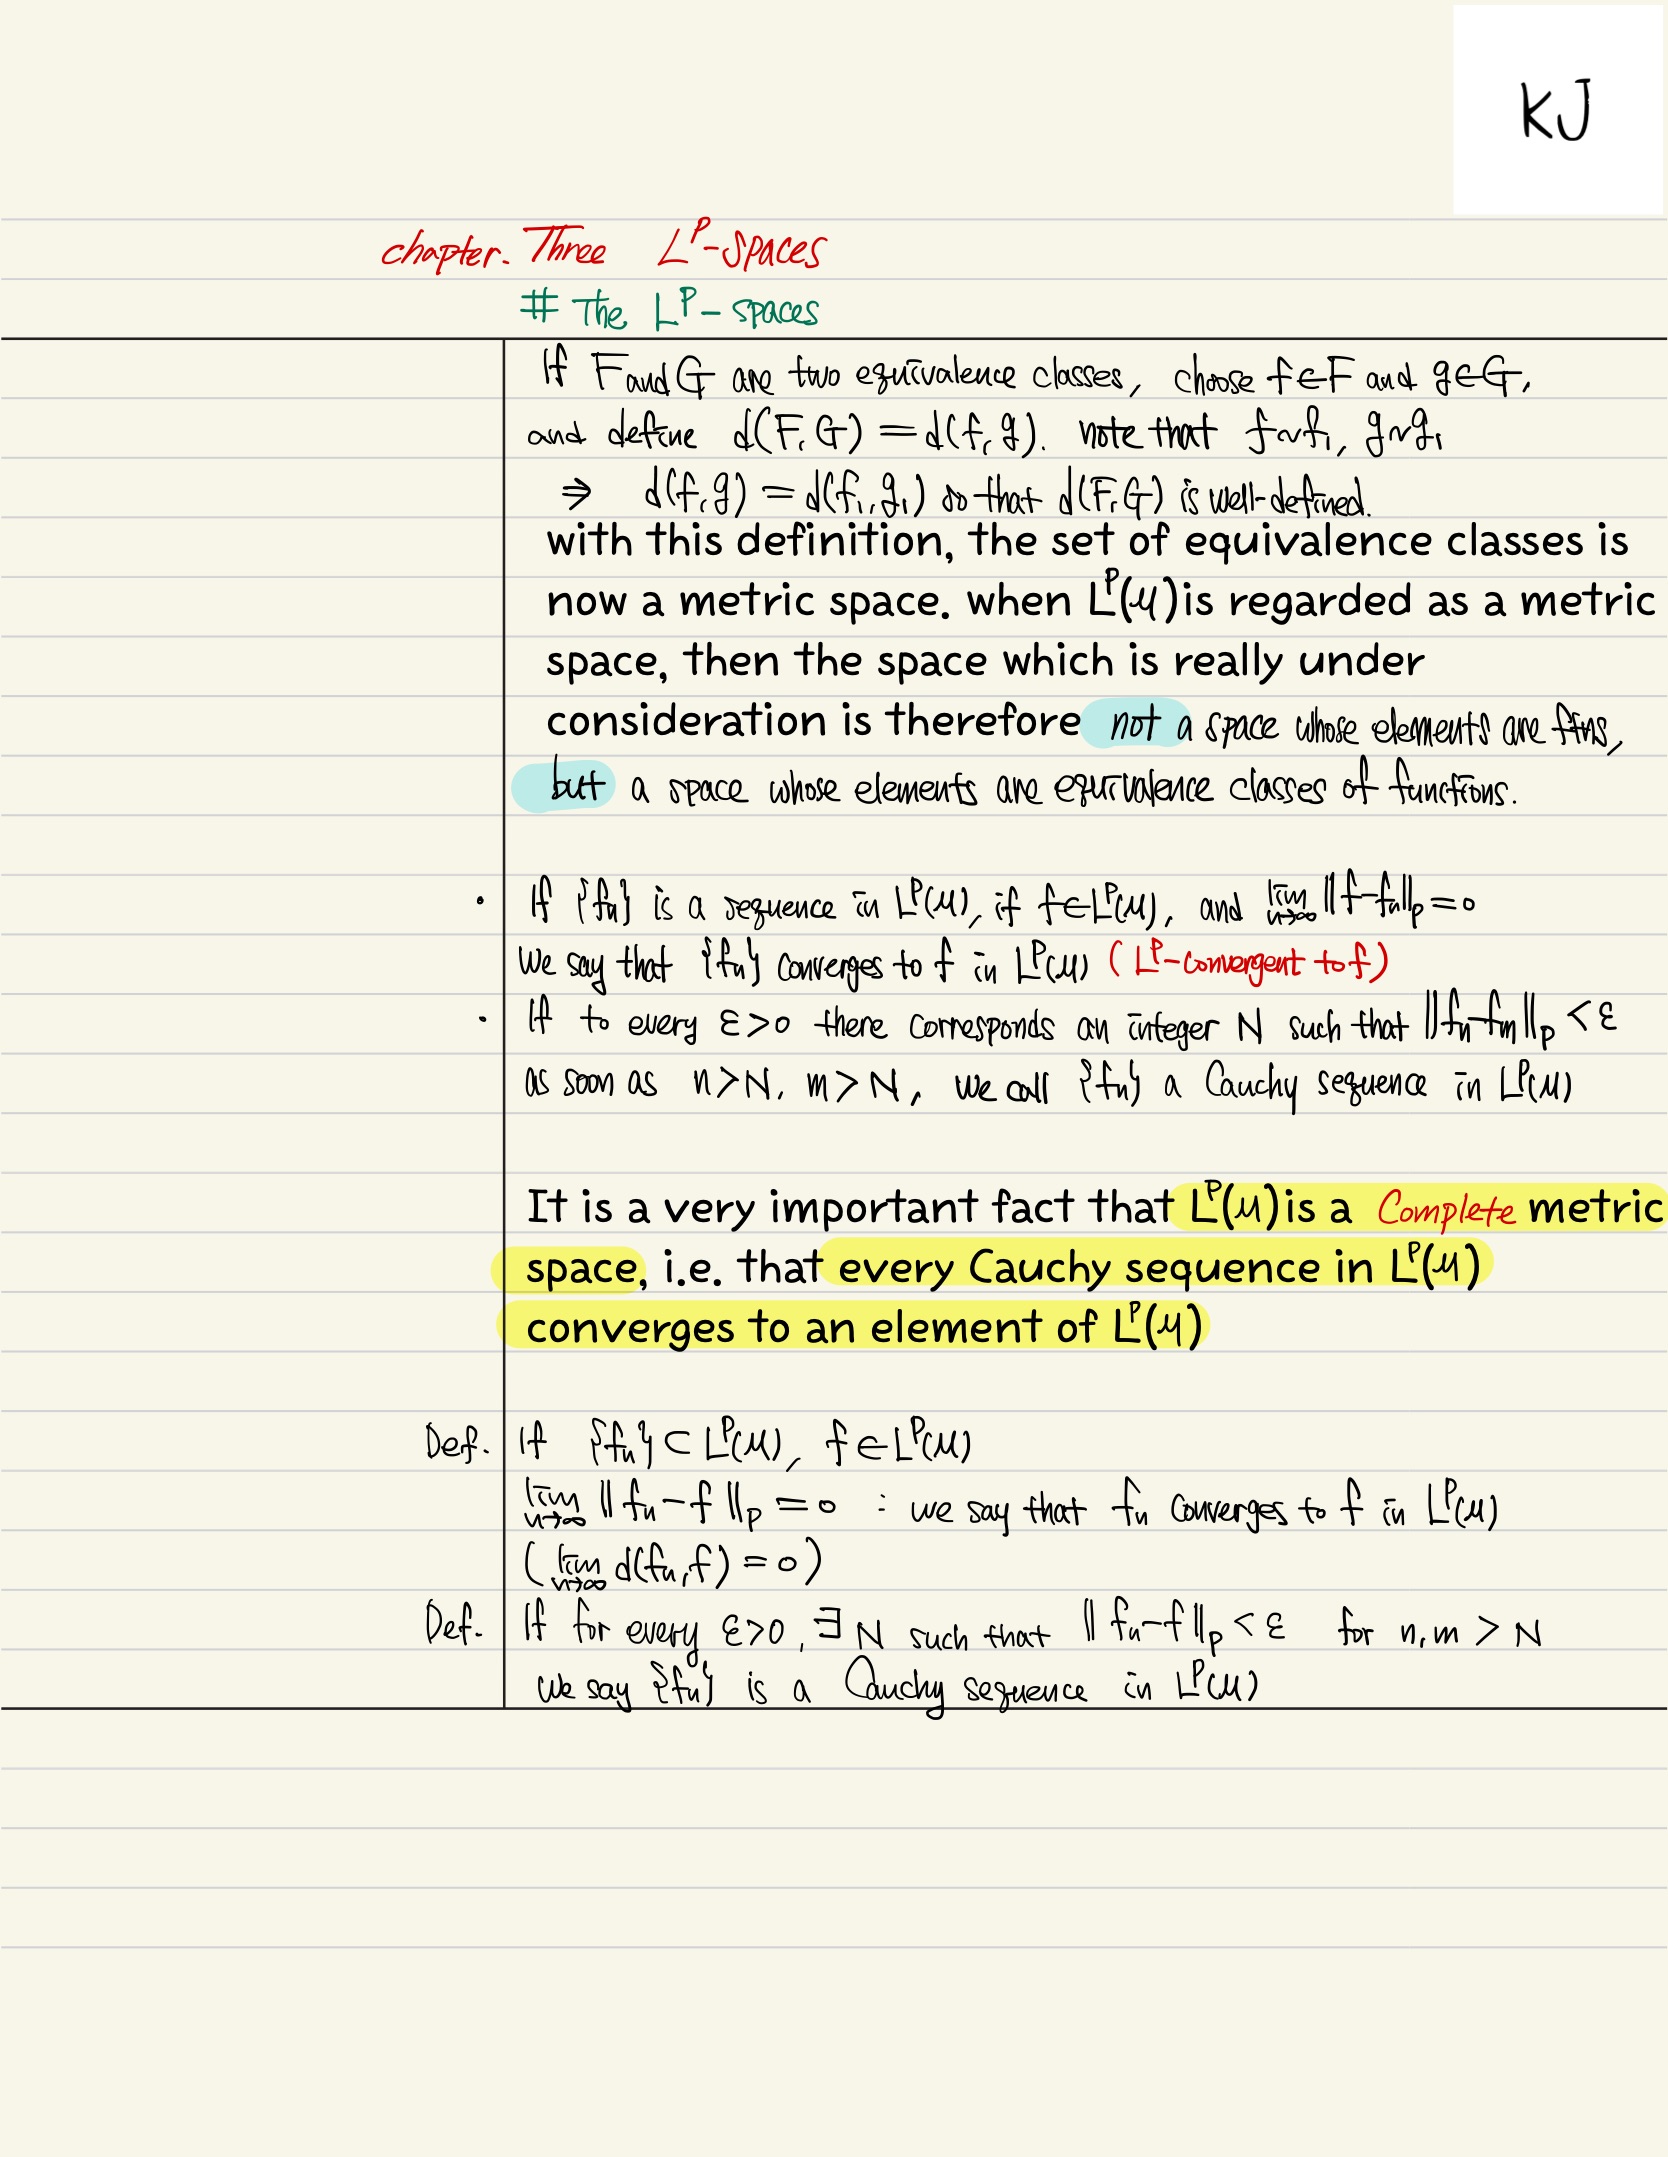 KJ
chapter. Three L^p-spaces
# The L^p-spaces
If F and G are two equivalence classes, choose f∈F and g∈G,
and define d(F,G) = d(f,g). note that f~f₁, g~g₁
⇒ d(f,g) = d(f₁,g₁) so that d(F,G) is well-defined.
with this definition, the set of equivalence classes is
now a metric space. when L^p(μ) is regarded as a metric
space, then the space which is really under
consideration is therefore not a space whose elements are ftns,
but a space whose elements are equivalence classes of functions.
· If {fₙ} is a sequence in L^p(μ), if f∈L^p(μ), and lim n→∞ ‖f-fₙ‖_p = 0
We say that {fₙ} converges to f in L^p(μ) (L^p-convergent to f)
· If to every ε>0 there corresponds an integer N such that ‖fₙ-fₘ‖_p < ε
as soon as n>N, m>N, we call {fₙ} a Cauchy sequence in L^p(μ)
It is a very important fact that L^p(μ) is a Complete metric
space, i.e. that every Cauchy sequence in L^p(μ)
converges to an element of L^p(μ)
Def. If {fₙ} ⊂ L^p(μ), f∈L^p(μ)
lim n→∞ ‖fₙ-f‖_p = 0 : we say that fₙ converges to f in L^p(μ)
(lim n→∞ d(fₙ,f) = 0)
Def. If for every ε>0, ∃ N such that ‖fₙ-f‖_p < ε for n,m > N
we say {fₙ} is a Cauchy sequence in L^p(μ)